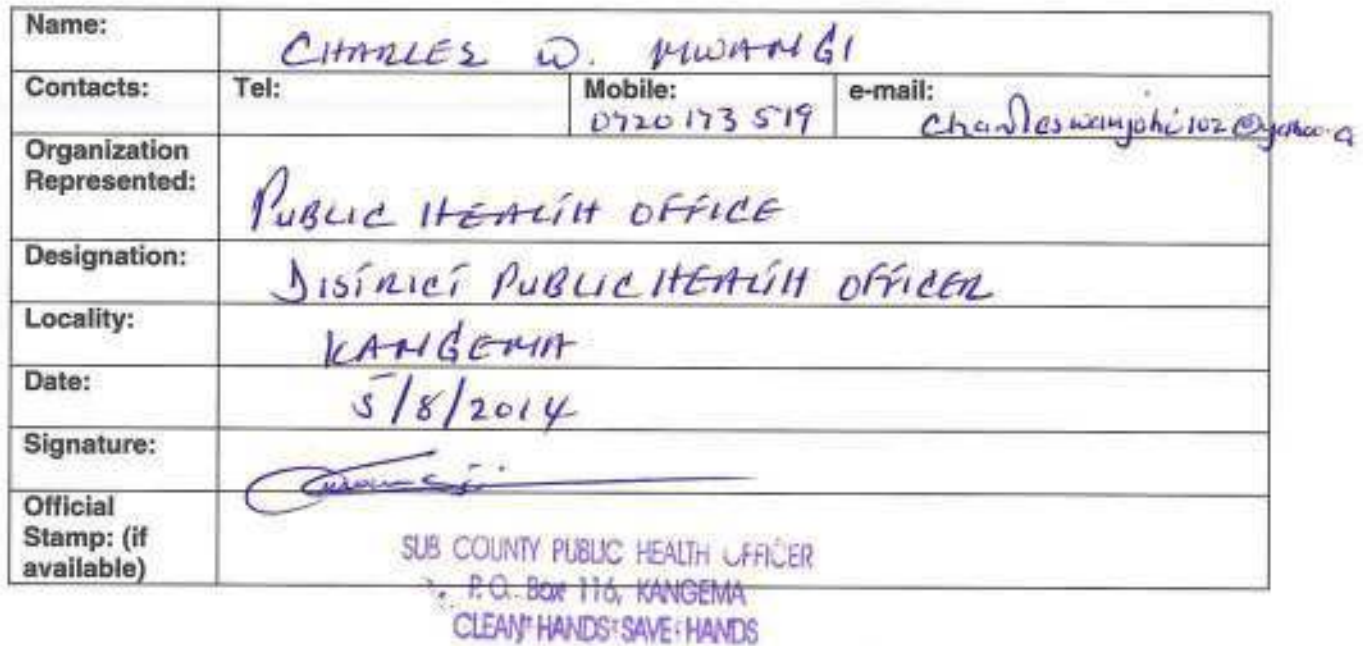 Name: CHARLES W. MWANGI
Contacts: Tel: Mobile: e-mail:
0720 173 519 charleswanjohi102@yahoo.
Organization
Represented:
PUBLIC HEALTH OFFICE
Designation: DISTRICT PUBLIC HEALTH OFFICER
Locality: KANGEMA
Date: 5/8/2014
Signature:
Official
Stamp: (if
available)
SUB COUNTY PUBLIC HEALTH OFFICER
P.O. Box 116, KANGEMA
CLEAN HANDS SAVE HANDS